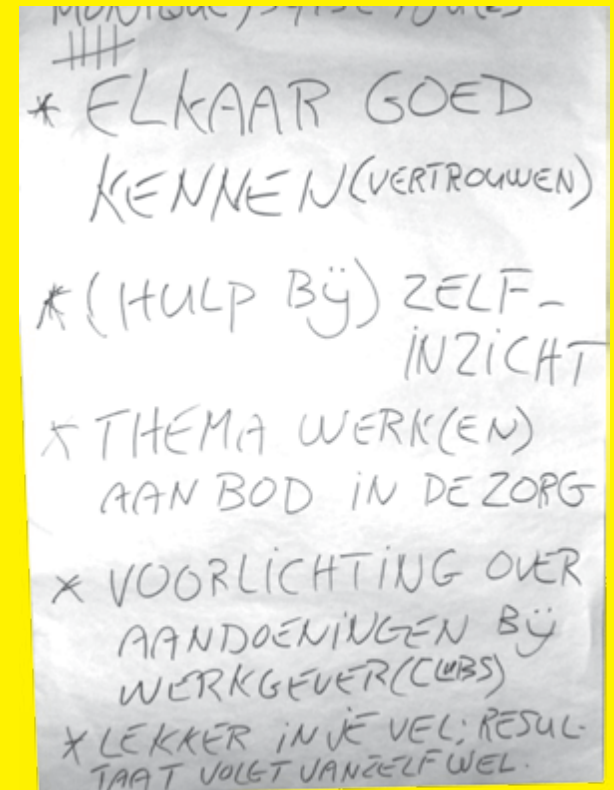 MONIQUE,
* ELKAAR GOED
KENNEN (VERTROUWEN)
* (HULP BIJ) ZELF-
INZICHT
* THEMA WERK(EN)
AAN BOD IN DE ZORG
* VOORLICHTING OVER
AANDOENINGEN BIJ
WERKGEVER(CLUBS)
* LEKKER IN JE VEL; RESUL-
TAAT VOLGT VANZELF WEL.